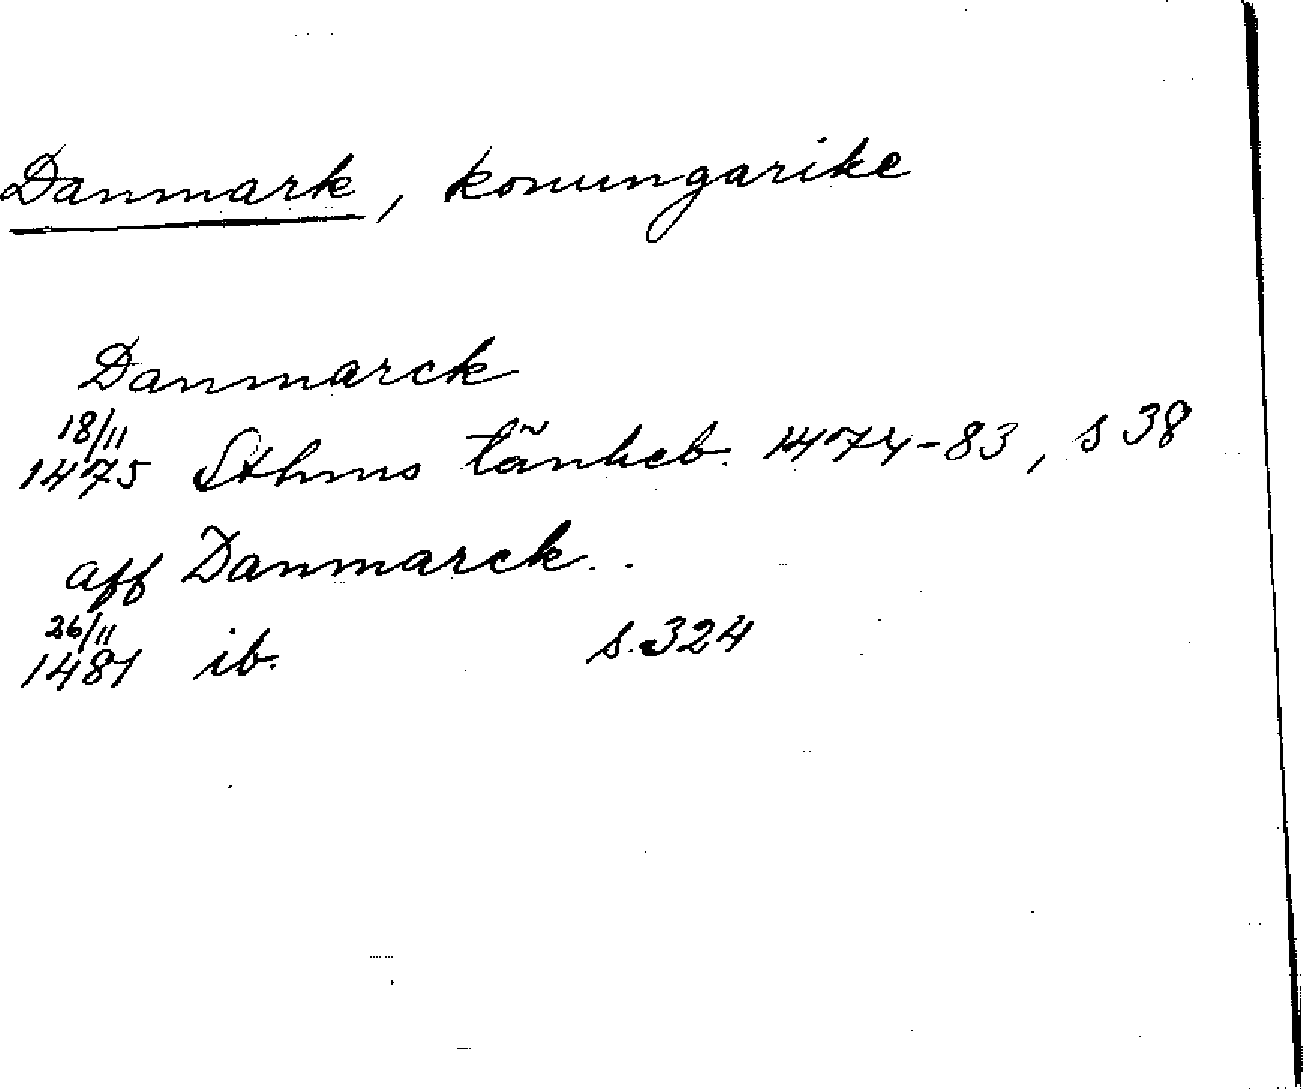 Danmark, konungarike
Danmarck
18/11
1475 Sthms tänkeb. 1474-83, s 38
aff Danmarck..
26/11
1481 ib. s.324